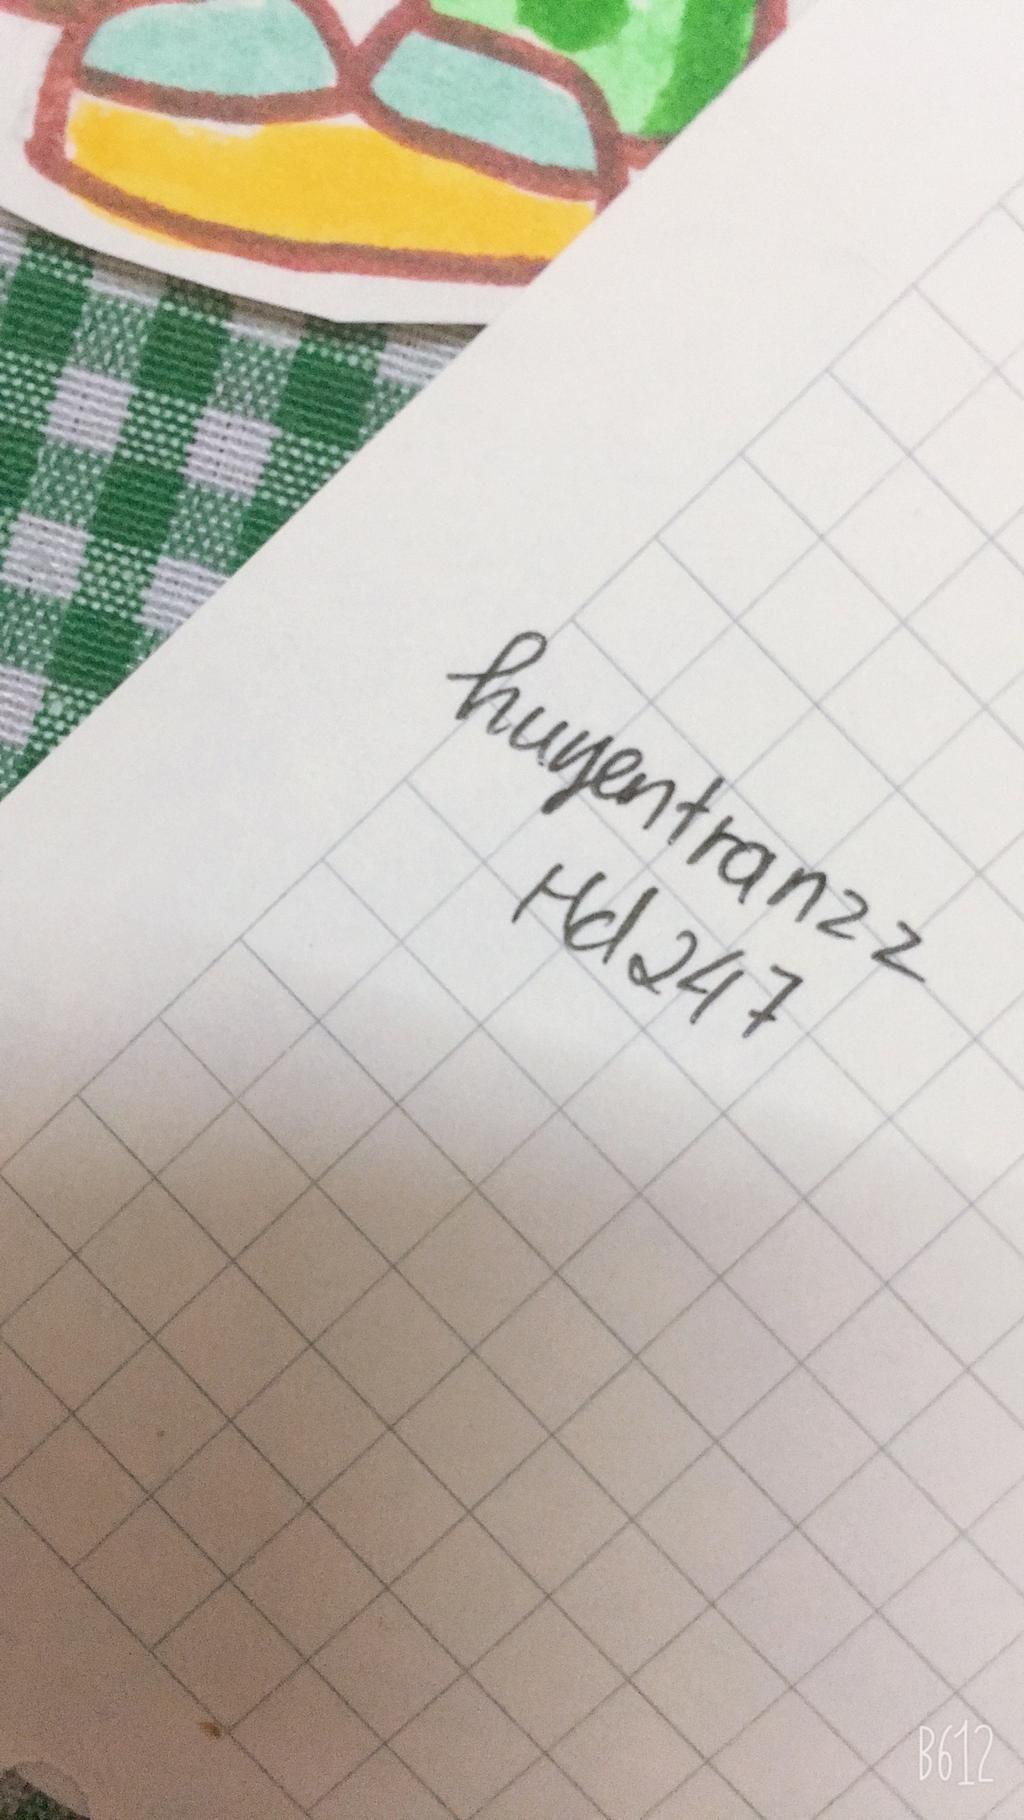 huyentranzz
Hd247
B612